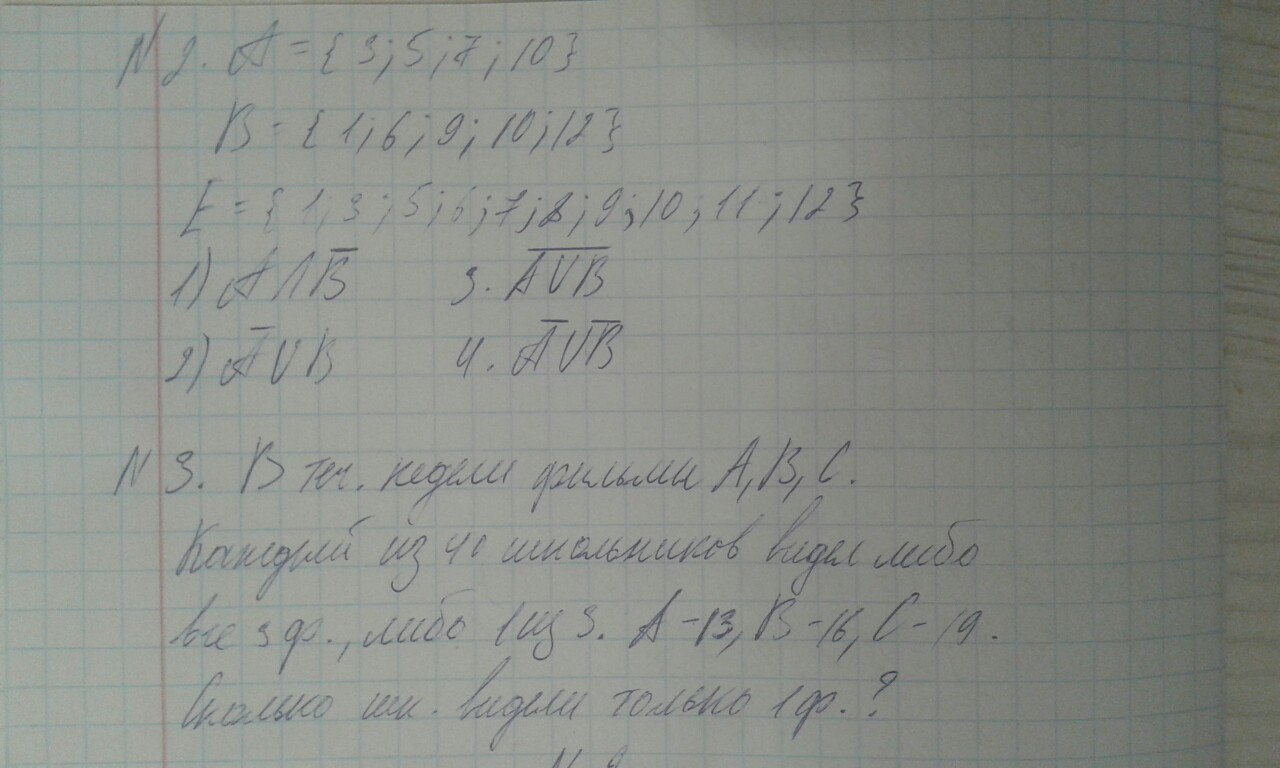 N 2. A = {3; 5; 7; 10}
B = {1; 6; 9; 10; 12}
E = {1; 3; 5; 6; 7; 8; 9; 10; 11; 12}
1) A ∩ B̅ 3. A̅ ̅∪̅ ̅B̅
2) A̅ ∪ B 4. A̅ ∪ B̅
N 3. В теч. недели фильмы A, B, C.
Каждый из 40 школьников видел либо
все 3 ф., либо 1 из 3. A - 13, B - 16, C - 19.
Сколько шк. видели только 1 ф.?